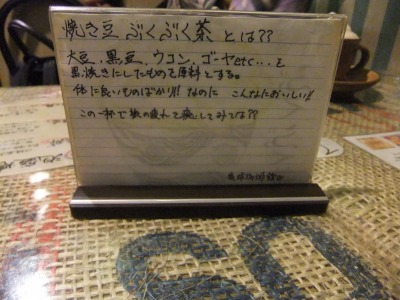 焼き豆 ぶくぶく茶 とは??
大豆、黒豆、ウコン、ゴーヤetc...を
黒焼きにしたものを原料とする。
体に良いものばかり!! なのに こんなにおいしい!!
この一杯で旅の疲れを癒してみては??